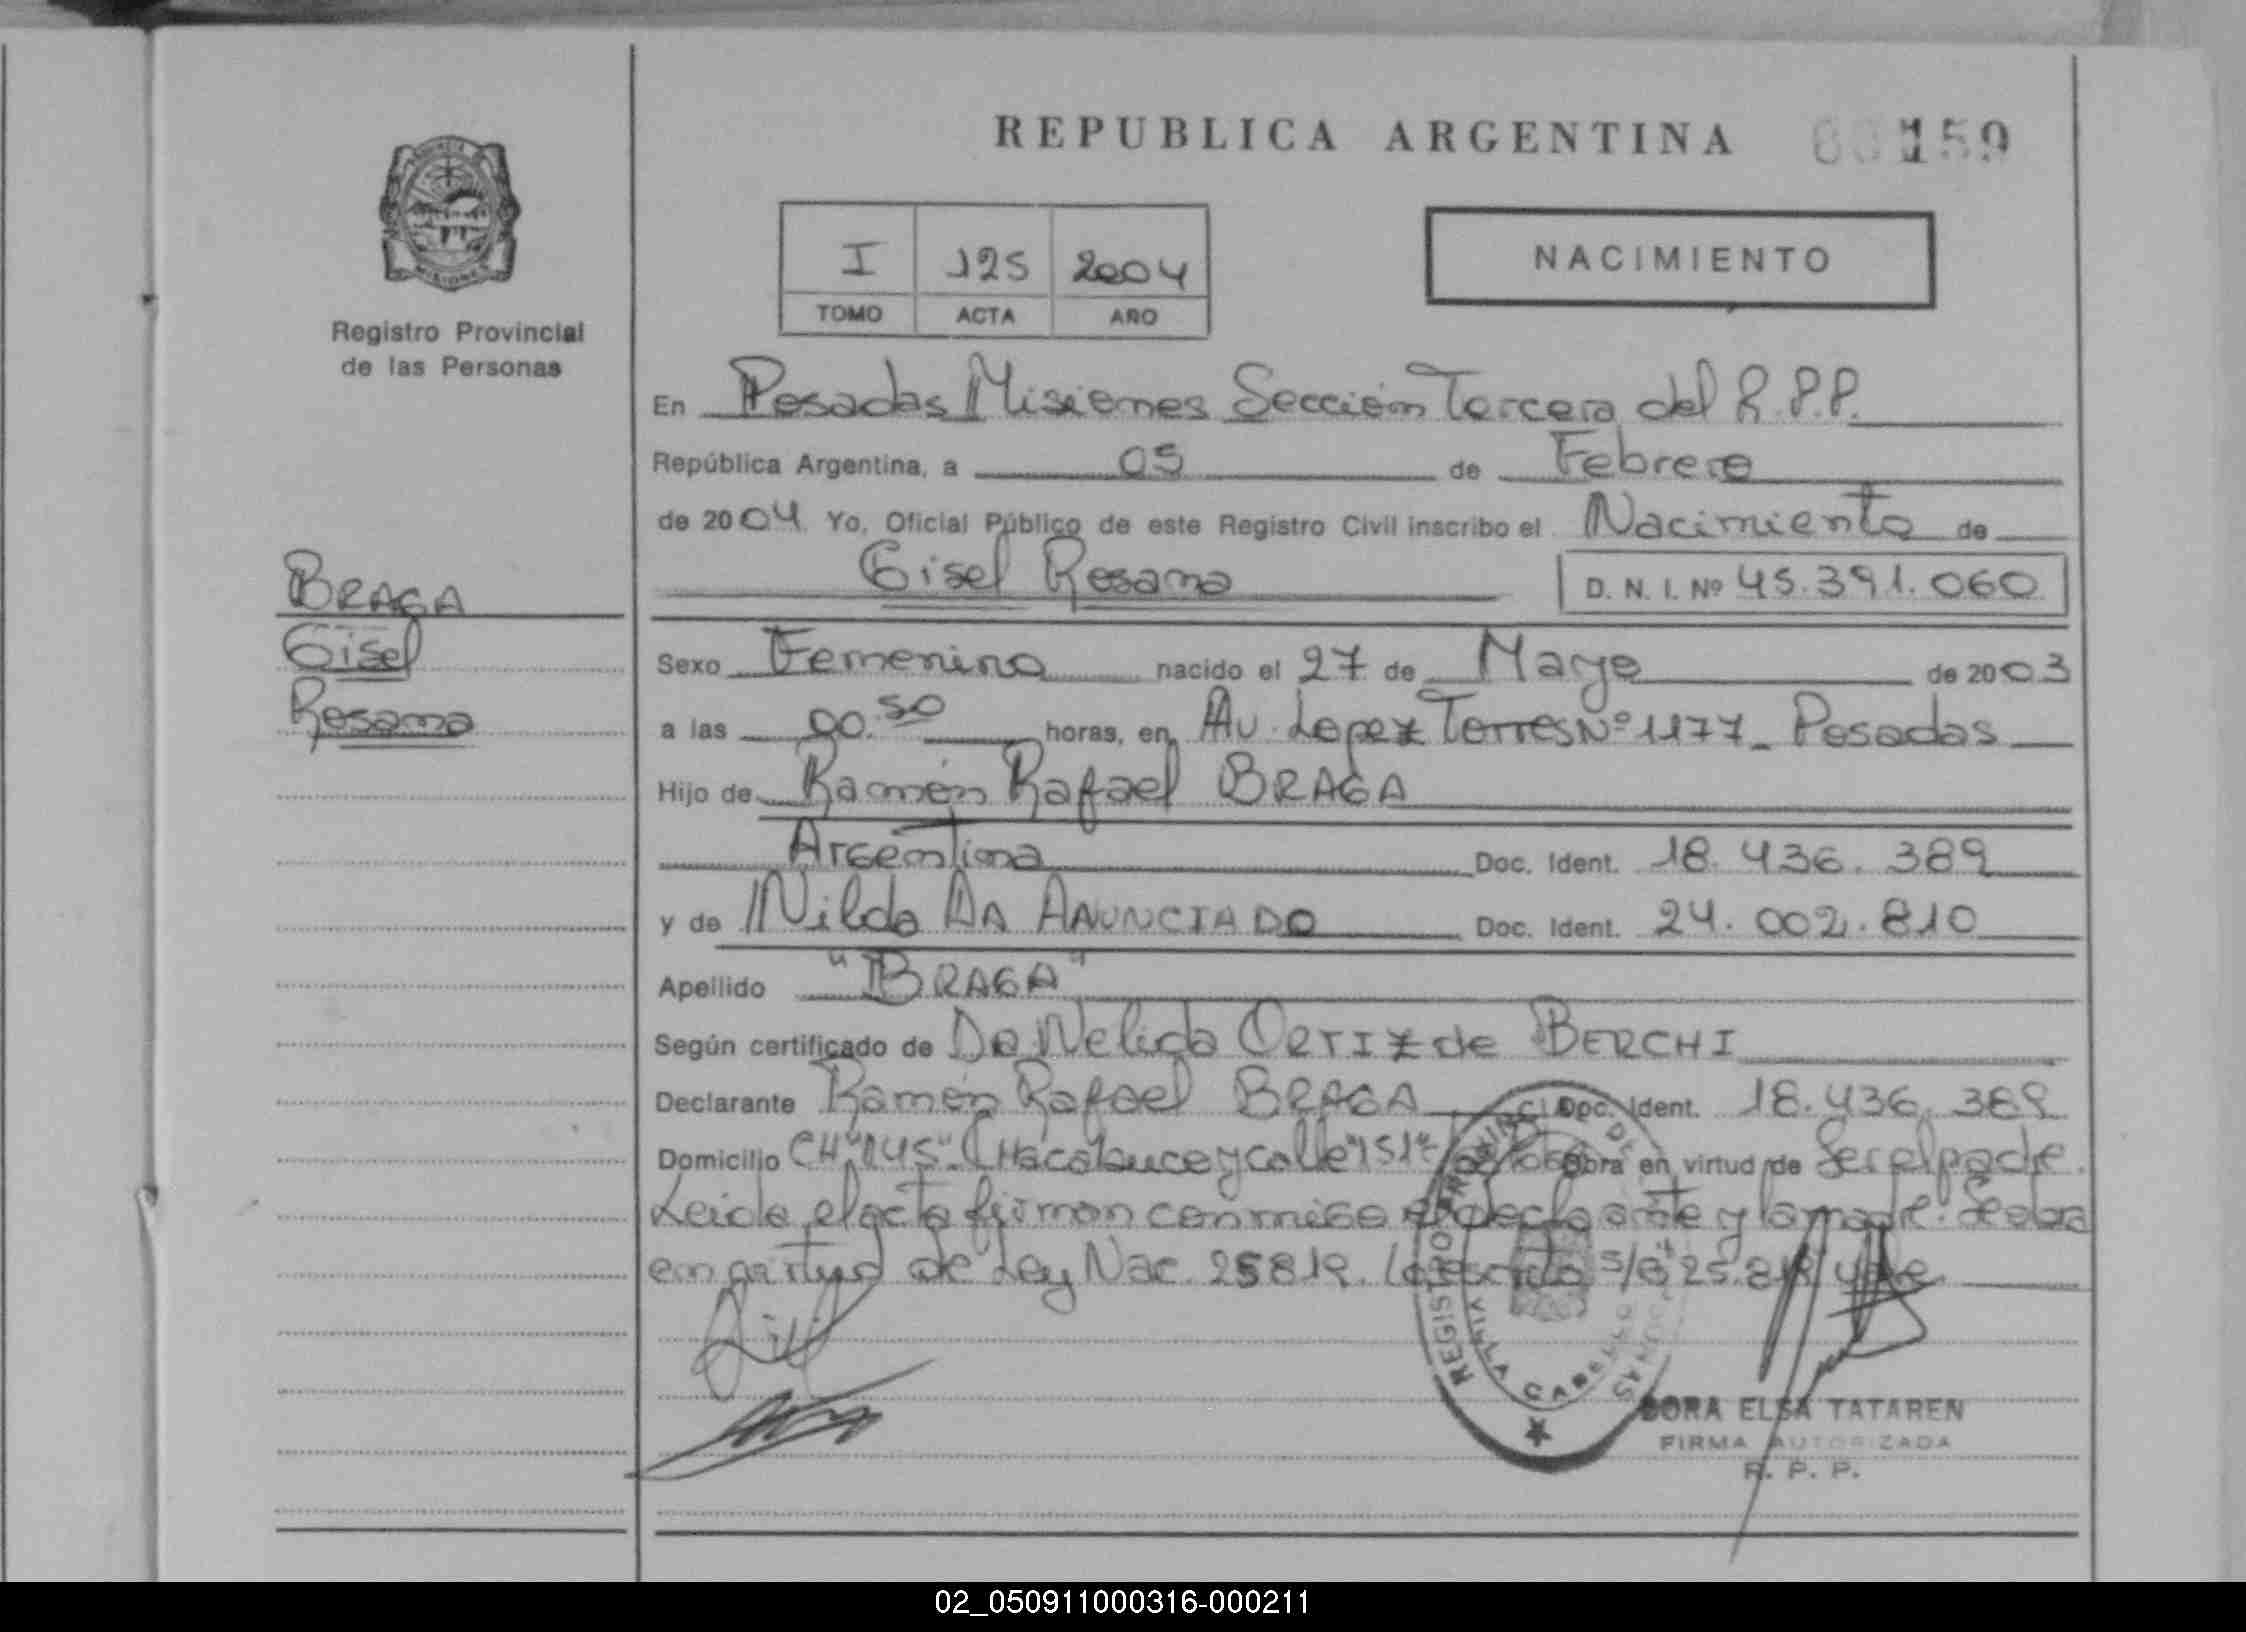 REPUBLICA ARGENTINA 00159
PROVINCIA DE
MISIONES
Registro Provincial
de las Personas
I 125 2004
TOMO ACTA AÑO
NACIMIENTO
En Posadas Misiones Sección Tercera del R.P.P.
República Argentina, a 05 de Febrero
de 2004 Yo, Oficial Público de este Registro Civil inscribo el Nacimiento de
Gisel Rosana D. N. I. Nº 45.391.060
BRAGA
Gisel
Rosana
Sexo Femenino nacido el 27 de Mayo de 2003
a las 00.50 horas, en Av. Lopez Torres Nº 1177_ Posadas
Hijo de Ramón Rafael BRAGA
Argentina Doc. Ident. 18.436.389
y de Nilda DA ANUNCIADO Doc. Ident. 24.002.810
Apellido "BRAGA"
Según certificado de Da Nelida ORTIZ de BERCHI
Declarante Ramón Rafael BRAGA Doc. Ident. 18.436.389
Domicilio CH"145" Chacabuco y calle "151" Obra en virtud de Ser el padre.
Leida el acta firman conmigo el declarante y la madre. Se labra
en virtud de Ley Nac. 25819. Lo escrito s/r 25.819 vale
REGISTRO PROVINCIAL DE LAS PERSONAS
VILLA CABELLO
DORA ELSA TATAREN
FIRMA AUTORIZADA
R. P. P.
02_050911000316-000211